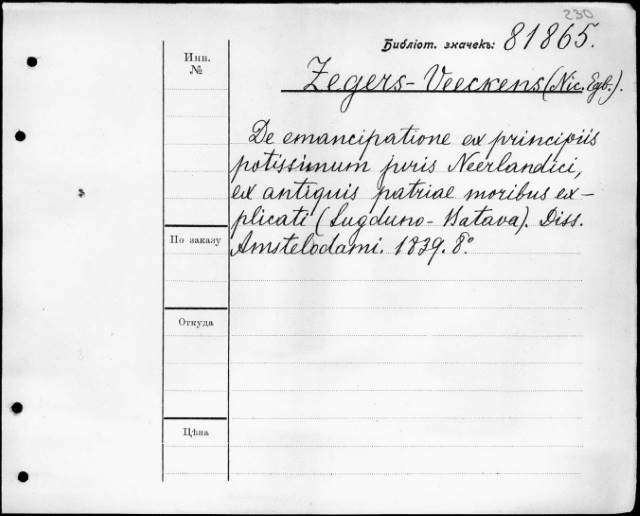 230
Библіот. значекъ: 81865.
Инв.
№
Zegers-Veeckens (Nic. Egb.).
De emancipatione ex principiis
potissimum juris Neerlandici,
ex antiquis patriae moribus ex-
plicati (Lugduno-Batava). Diss.
По заказу
Amstelodami. 1839. 8°.
Откуда
Цѣна